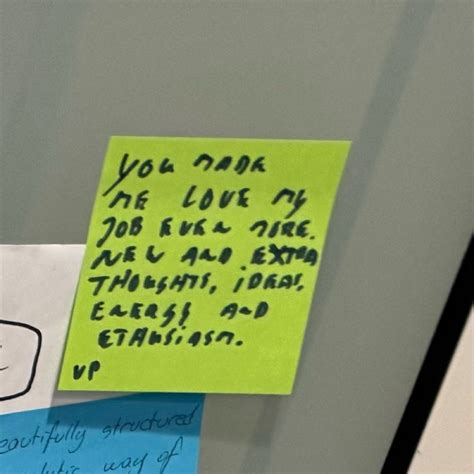 YOU MADE
ME LOVE MY
JOB EVEN MORE.
NEW AND EXTRA
THOUGHTS, IDEAS,
ENERGY AND
ETHUSIASM.
VP
eautifully structured
way of